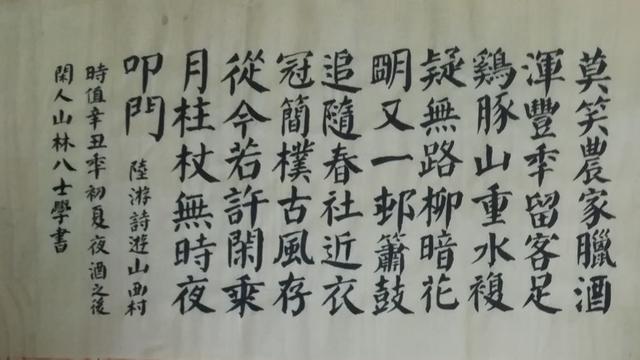 莫笑農家臘酒
渾豐秊留客足
鷄豚山重水複
疑無路柳暗花
朙又一邨簫鼓
追隨春社近衣
冠簡樸古風存
從今若許閑乘
月柱杖無時夜
叩門
陸游詩遊山西村
時值辛丑秊初夏夜酒之後
閑人山林八士學書